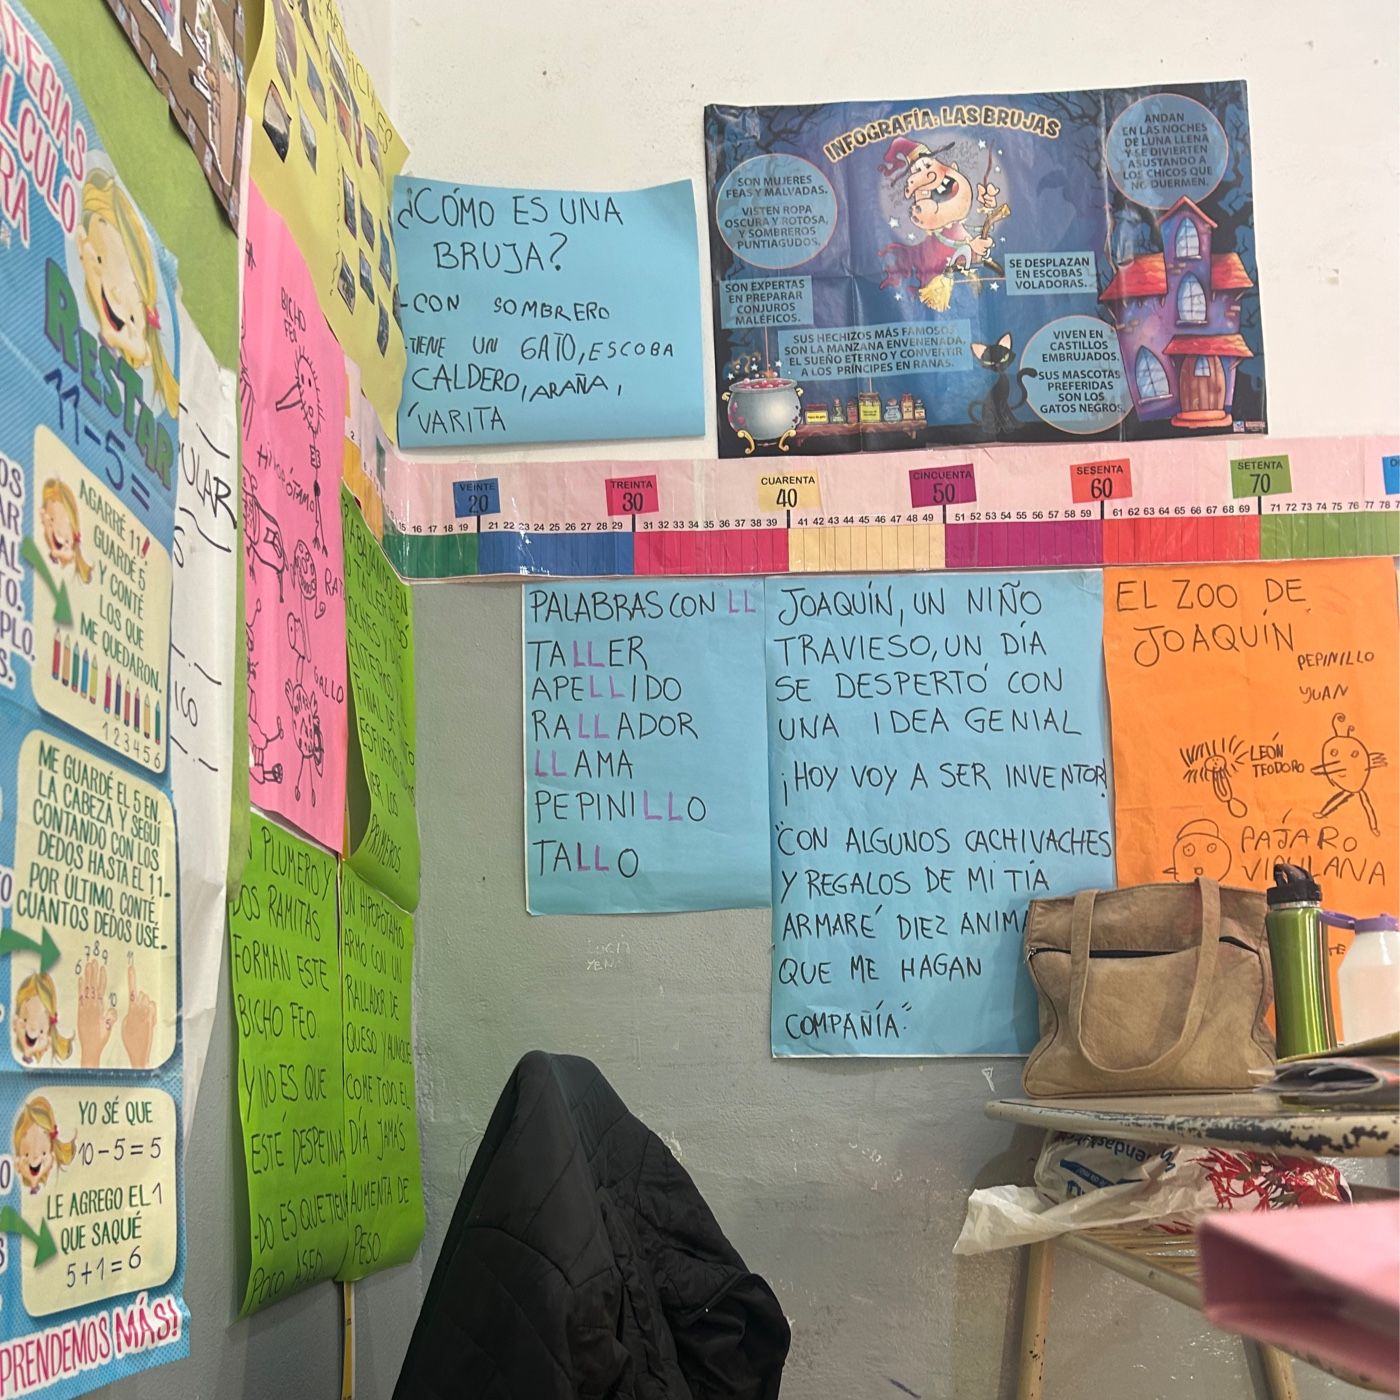 RESTAR
11-5=
AGARRÉ 11,
GUARDÉ 5
Y CONTÉ
LOS QUE
ME QUEDARON.
1 2 3 4 5 6
ME GUARDÉ EL 5 EN
LA CABEZA Y SEGUÍ
CONTANDO CON LOS
DEDOS HASTA EL 11.
POR ÚLTIMO, CONTÉ
CUÁNTOS DEDOS USÉ.
6 7 8 9 10 11
YO SÉ QUE
10-5=5
LE AGREGO EL 1
QUE SAQUÉ
5+1=6
MÁS!
BICHO
FEO
GALLO
PLUMERO Y
DOS RAMITAS
FORMAN ESTE
BICHO FEO
Y NO ES QUE
ESTÉ DESPEINA
-DO ES QUE TIENE
POCO ASEO
PRIMEROS
UN HIPOPÓTAMO
ARMO CON UN
RALLADOR DE
QUESO Y AUNQUE
COME TODO EL
DÍA JAMÁS
AUMENTA DE
PESO
¿CÓMO ES UNA
BRUJA?
-CON SOMBRERO
-TIENE UN GATO, ESCOBA
CALDERO, ARAÑA,
VARITA
INFOGRAFÍA: LAS BRUJAS
SON MUJERES
FEAS Y MALVADAS.
VISTEN ROPA
OSCURA Y ROTOSA,
Y SOMBREROS
PUNTIAGUDOS.
ANDAN
EN LAS NOCHES
DE LUNA LLENA
Y SE DIVIERTEN
ASUSTANDO A
LOS CHICOS QUE
NO DUERMEN.
SE DESPLAZAN
EN ESCOBAS
VOLADORAS.
SON EXPERTAS
EN PREPARAR
CONJUROS
MALÉFICOS.
SUS HECHIZOS MÁS FAMOSOS
SON LA MANZANA ENVENENADA,
EL SUEÑO ETERNO Y CONVERTIR
A LOS PRÍNCIPES EN RANAS.
VIVEN EN
CASTILLOS
EMBRUJADOS.
SUS MASCOTAS
PREFERIDAS
SON LOS
GATOS NEGROS.
VEINTE TREINTA CUARENTA CINCUENTA SESENTA SETENTA
20 30 40 50 60 70
15 16 17 18 19 21 22 23 24 25 26 27 28 29 31 32 33 34 35 36 37 38 39 41 42 43 44 45 46 47 48 49 51 52 53 54 55 56 57 58 59 61 62 63 64 65 66 67 68 69 71 72 73 74 75 76 77 78
PALABRAS CON LL
TALLER
APELLIDO
RALLADOR
LLAMA
PEPINILLO
TALLO
JOAQUÍN, UN NIÑO
TRAVIESO, UN DÍA
SE DESPERTÓ CON
UNA IDEA GENIAL
¡HOY VOY A SER INVENTOR!
"CON ALGUNOS CACHIVACHES
Y REGALOS DE MI TÍA
ARMARÉ DIEZ ANIMA
QUE ME HAGAN
COMPAÑÍA."
EL ZOO DE
JOAQUÍN
PEPINILLO
YUAN
LEÓN
TEODORO
PÁJARO